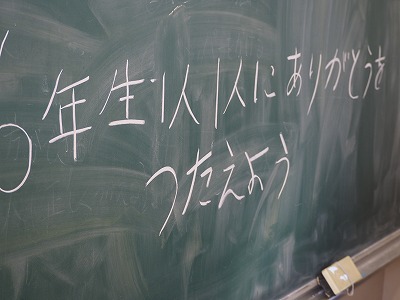 6年生1人1人にありがとうを
つたえよう